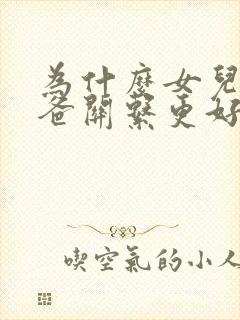 為什麼女兒
爸關繫更好
喫空氣的小人